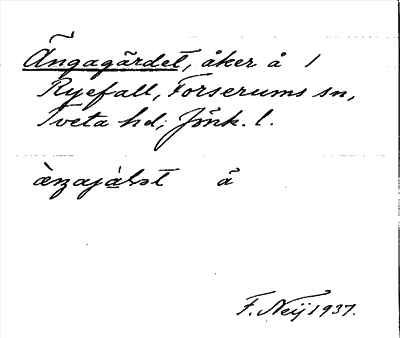 Ängagärdet, åker å 1
Ryefall, Forserums sn,
Tveta hd; Jönk. l.
å
F. Neij 1937.